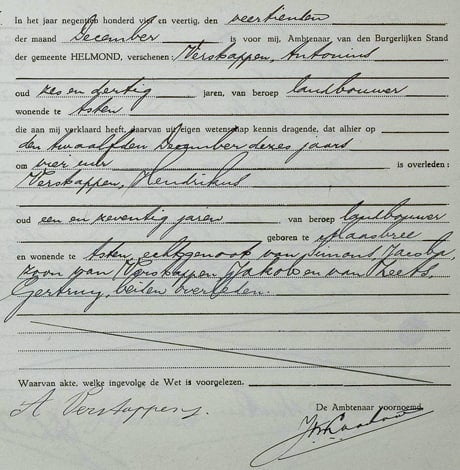 In het jaar negentien honderd vier en veertig, den veertienden
der maand December is voor mij, Ambtenaar, van den Burgerlijken Stand
der gemeente HELMOND, verschenen: Verskappen, Antonius
oud zes en dertig jaren, van beroep landbouwer
wonende te Asten
die aan mij verklaard heeft, daarvan uit eigen wetenschap kennis dragende, dat alhier op
den twaalfden December dezes jaars
om vier uur is overleden:
Verskappen, Hendrikus
oud een en zeventig jaren van beroep landbouwer
geboren te Maasbree
en wonende te Asten, echtgenoot van Simons, Jacoba,
zoon van Verskappen, Jakob en van Geertruy, beiden overleden.
Waarvan akte, welke ingevolge de Wet is voorgelezen.
A Verstappen
De Ambtenaar voornoemd,